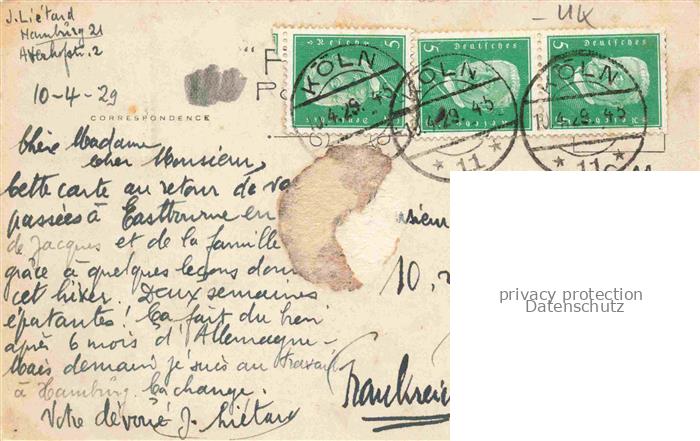 J. Liétard
Hamburg 21
2
10-4-29
CORRESPONDENCE
"P
Po
UK
5 Deutsches Reich
5 Deutsches Reich
5 Deutsches Reich
KÖLN
4.29. 4-5
KÖLN
4.29. 4-5
* 11 *
KÖLN
4.29. 4-5
* 11 *
Chère Madame,
cher Monsieur,
Cette carte au retour de va
passées à Eastbourne en
de Jacques et de la famille
grâce à quelques leçons donn
cet hiver. Deux semaines
épatantes! Ça fait du bien
après 6 mois d'Allemagne-
Mais demain je suis au travail
à Hamburg. Ça change.
Votre dévoué J. Liétard
nsieur
10,
Frankreic
privacy protection
Datenschutz